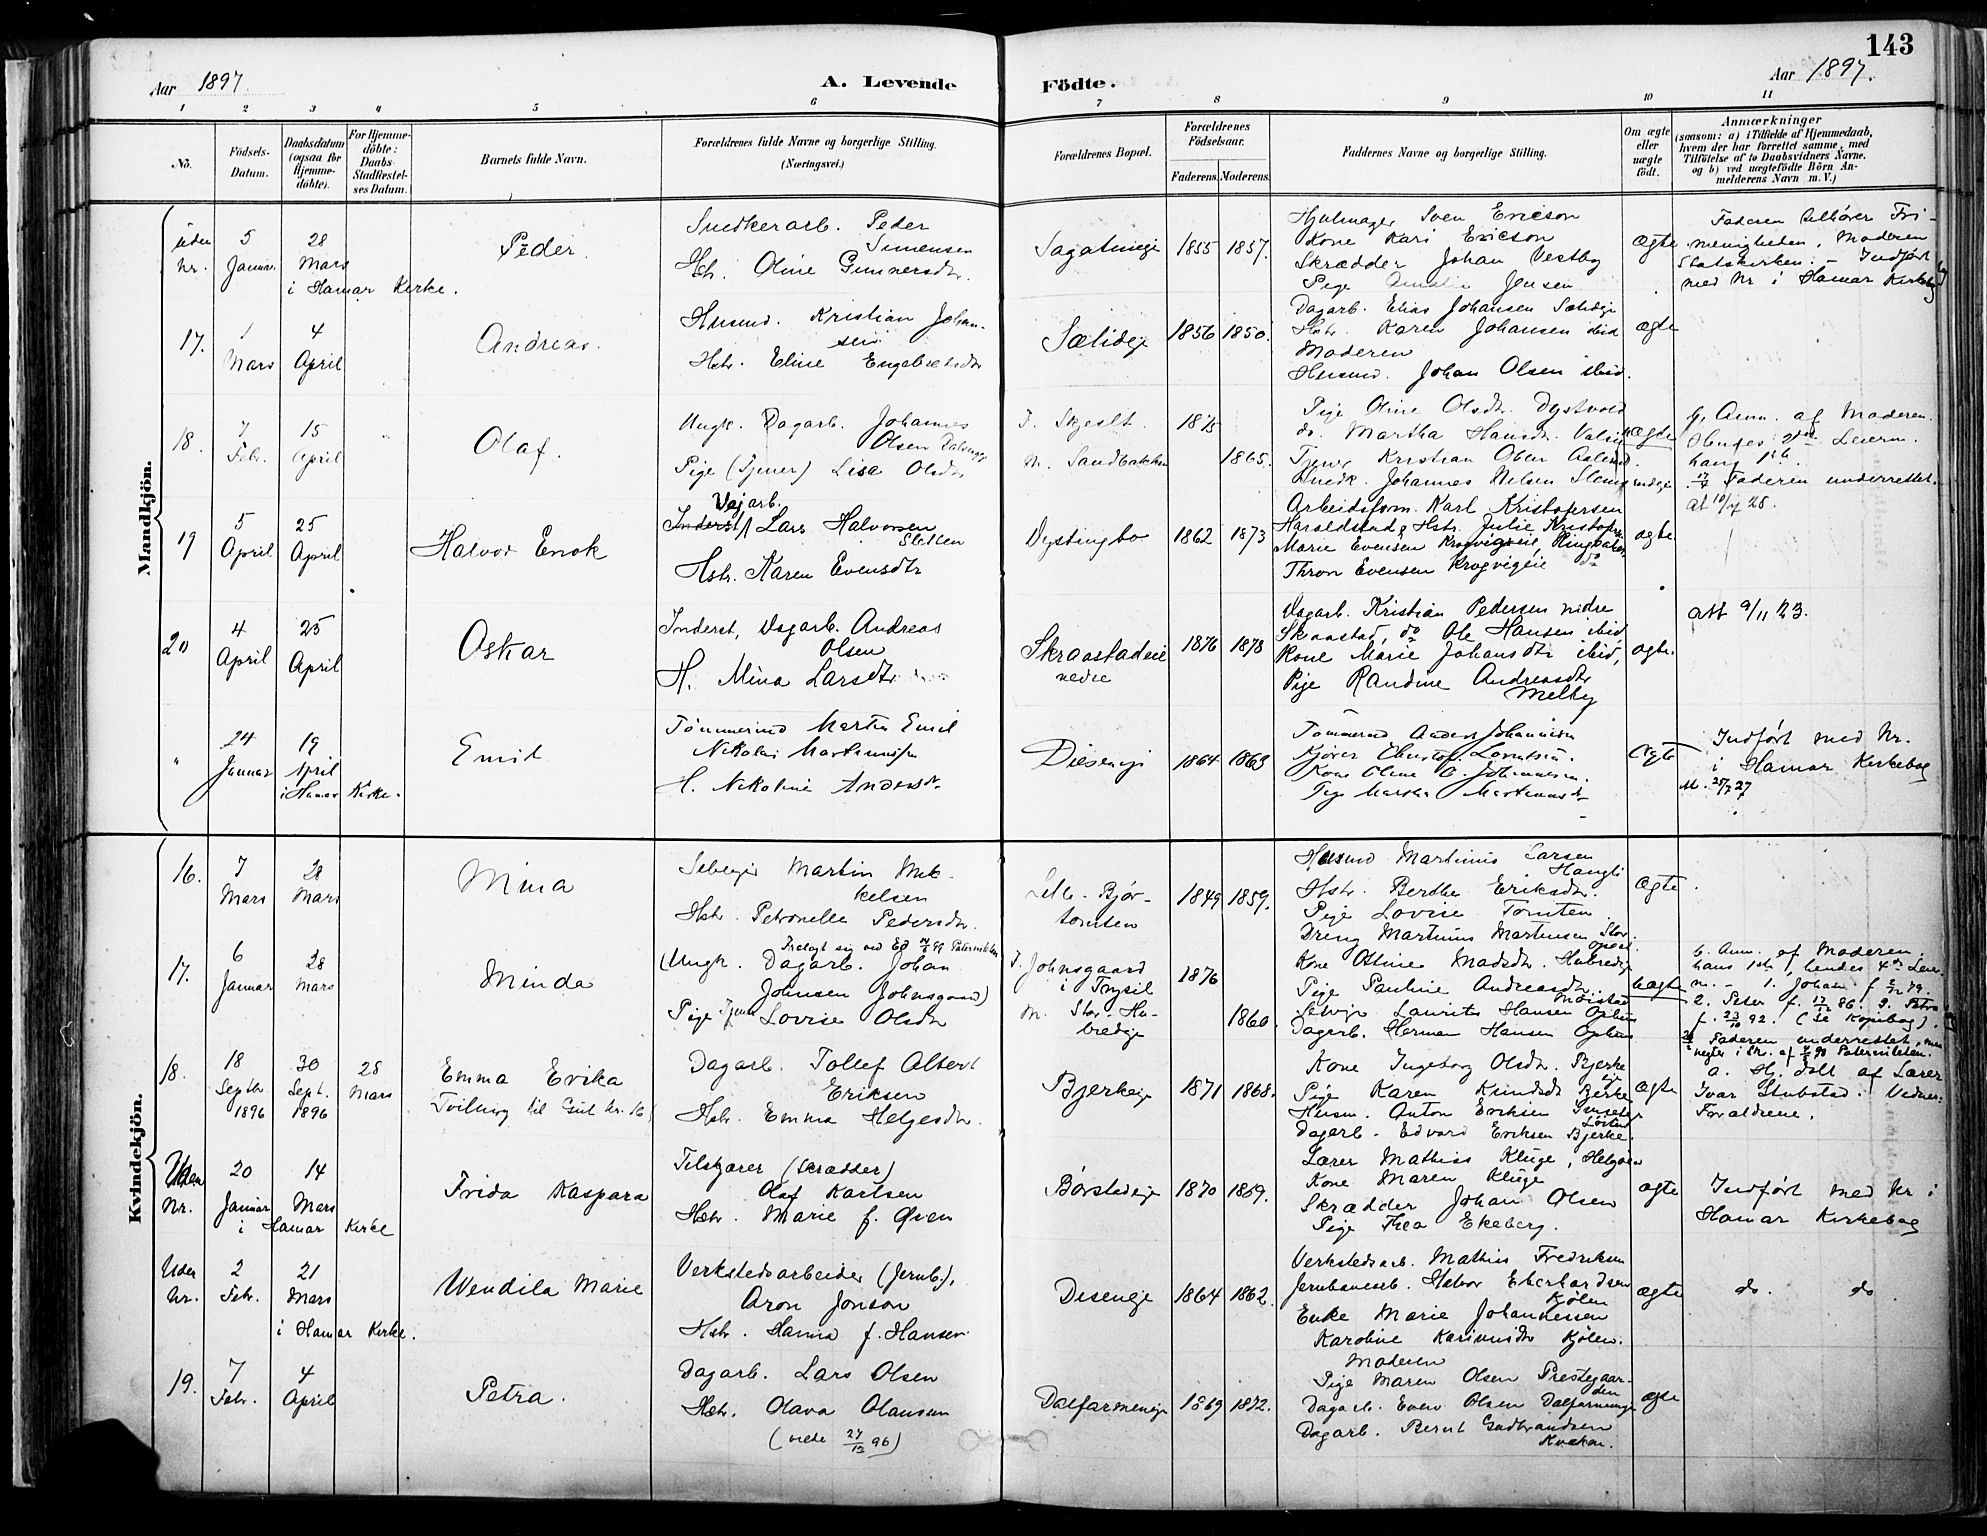 143
Aar 1897.
A. Levende
Födte.
Aar 1897.
1 2 3 4 5 6 7 8 9 10 11
No.
Födsels-Datum.
Daabsdatum (ogsaa for Hjemme-döbte).
For Hjemme-döbte: Daabs-Stadfestel-ses Datum.
Barnets fulde Navn.
Forældrenes fulde Navne og borgerlige Stilling. (Næringsvei.)
Forældrenes Bopæl.
Forældrenes Födselsaar.
Faderens. Moderens.
Faddernes Navne og borgerlige Stilling.
Om ægte eller uægte födt.
Anmærkninger
(saasom: a) i Tilfælde af Hjemmedaab, hvem der har forrettet samme, med Tilföielse af to Daabsvidners Navne. og b) ved uægtefödte Börn An-melderens Navn m. V.)
Mandkjön.
Uden Nr.
5 Januar.
28 Mars
i Hamar Kirke.
Peder
Snedkerarb. Peder
Simensen
Hstr. Oline Gunnersdtr.
1855 1857.
Hjulmager Sven Ericson
Kone Kari Ericson
Skrædder Johan Vestby
Pige Amalie Jensen
ægte
Faderen tilhører Fri-
menigheden, Moderen
Statskirken. - Indført
med Nr i Hamar Kirkebog
17.
1 Mars
4 April
Andreas.
Husmd. Kristian Johan-
sen
Hstr. Eline Engebretsdtr
Sælideje
1856 1850.
Dagarb. Elias Johansen Sælideje
Hstr. Karen Johansen ibid
Moderen
Husmd. Johan Olsen ibid.
ægte
18.
7 Febr.
15 April
Olaf.
Ungk. Dagarb. Johannes
Olsen
Pige (Tjener) Lise Olsdtr
F. Skjeslt.
M. Sandbakken
1875
1865.
Pige Oline Olsdtr. Dystvold
do. Martha Hansdtr.
Tjener Kristian Olsen
Snedk. Johannes Nilsen
uægte
b. Anm. af Moderen.
Hendes 2det Leierm.
hans 1ste.
Faderen underrettet.
19
5 April
25 April
Halvor Enok
Vejarb.
Inderst Lars Halvorsen
Sletten
Hstr. Karen Evensdtr
Dystingbo
1862 1873
Arbeidsform. Karl Kristofersen
Haraldstad, Hstr. Julie Kristofersen
Marie Evensen Krogvigeie, Ringsaker,
Thron Evensen Krogvigeie do
ægte
20
4 April
25 April
Oskar
Inderst, Dagarb. Andreas
Olsen
H. Mina Larsdtr
Skraastadeie
nedre
1876 1878
Dagarb. Kristian Pedersen nedre
Skraastad, do Ole Hansen ibid
Kone Marie Johansdtr ibid,
Pige Randine Andreasdtr
Melby
ægte.
Att 9/11 23.
"
24 Januar
19 April
i Hamar Kirke.
Emil
Tømmermd Martin Emil
Nikolai Martinussen
H. Nikoline Andersdtr
Diseneje
1864 1863
Tømmermd Anders Johannesen
Kone Oline O. Johannesen.
Pige Martha Martinusdtr
Ægte
Indført med Nr.
i Hamar Kirkebog
Kvindekjön.
16.
7 Mars
28 Mars
Mina
Selvejer Martin Mik-
kelsen
Hstr. Petronelle Pedersdtr.
Lille-Bjør-
tomten
1849 1859.
Husmd Martinus Larsen
Hangli
Hstr. Berthe Eriksdtr.
Pige Lovise Tomten
Dreng Martinus Martinsen
ægte.
17.
6 Januar
28 Mars
Minda
(Ungk. Dagarb. Johan
Johnsen Johnsgaard)
Pige Tjener Lovise Olsdtr
F. Johnsgaard
i Trysil
M. Stor-Hu-
bredeje
1876
1860.
Kone Oline Madsdtr. Hubredeje
Pige Pauline Andreasdtr.
Selvejer Laurits Hansen
Dagarb. Herman Hansen
uægte
b. Anm. af Moderen,
hans 1ste, hendes 4de Leier-
m. - 1. Johan
2. Peter f. 17/12 86. 3. Petra
f. 23/10 92. (Se Kopibog).
Faderen underrettet, men
18.
18 Septbr. 1896
30 Sept. 1896
28 Mars
Emma Erika
Tvilling til Gut Nr. 16
Dagarb. Tollef Albert
Eriksen
Hstr. Emma Helgesdtr.
Bjerkeje
1871 1868.
Kone Ingeborg Olsdtr. Bjerke
Pige Karen Knudsdtr Bjerke
Husm. Anton Eriksen
Dagarb. Edvard Eriksen Bjerke.
ægte
a. Hj. døbt af Lærer
Ivar Stubstad. Vidner:
Forældrene.
Uden Nr.
20 Januar
14 Mars
i Hamar Kirke
Frida Kaspara
Tilskjærer (Skrædder)
Olaf Karlsen
Hstr. Marie f. Øven
Børstadeje
1870 1869.
Lærer Mathias Kluge, Helgøen
Kone Maren Kluge
Skrædder Johan Olsen
Pige Thea Ekeberg.
ægte
Indført med Nr i
Hamar Kirkebog
Uden Nr.
2 Febr.
21 Mars
i Hamar Kirke.
Wendila Marie
Verkstedsarbeider (Jernb.),
Aron Jonson
Hstr. Hanna f. Hansen
Diseneje
1864 1862.
Verkstedsarb. Mathias Fredriksen
Jernbanearb. Halvor Eberhardsen
Kjølen
Enke Marie Johannessen
Karoline Karinusdtr Kjølen.
ægte
do. do
19.
7 Febr.
4 April
Petra.
Dagarb. Lars Olsen
Hstr. Olava Olausen
(viede 27/12 96)
Dalfarmeneje
1869 1872.
Moderen
Pige Maren Olsen Prestegaar-
den
Dagarb. Even Olsen Dalfarmeneje
Dagarb. Bernt Gudbrandsen
ægte